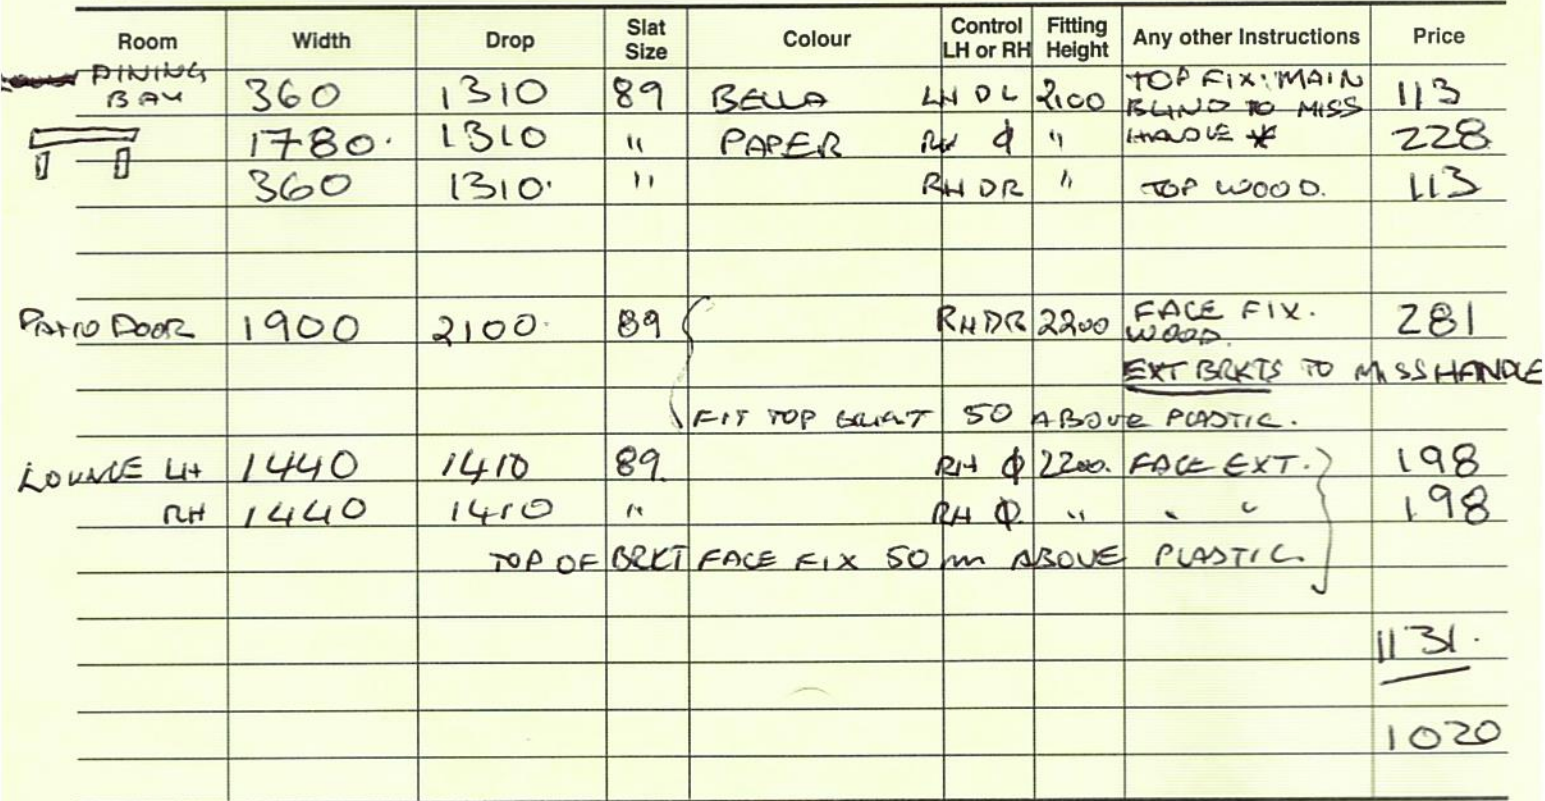 Room Width Drop Slat Size Colour Control LH or RH Fitting Height Any other Instructions Price
DINING BAY 360 1310 89 BELLA LH DL 2100 TOP FIX: MAIN BLIND TO MISS 113
1780. 1310 " PAPER RH ϕ " HANDLE * 228
360 1310. " RH DR " TOP WOOD. 113
PATIO DOOR 1900 2100. 89 RH DR 2200 FACE FIX. WOOD. 281
EXT BRKTS TO MISS HANDLE
FIT TOP 50 ABOVE PLASTIC.
LOUNGE LH 1440 1410 89. RH ϕ 2200. FACE EXT. 198
RH 1440 1410 " RH ϕ. " " " 198
TOP OF BRKT FACE FIX 50 m ABOVE PLASTIC.
1131.
1020